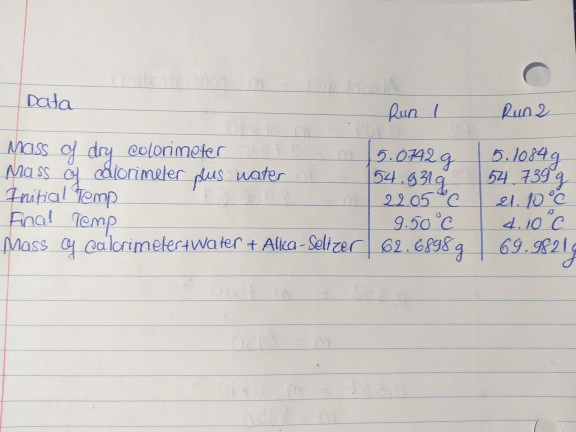 Data
Run 1 Run 2
Mass of dry calorimeter 5.0742g 5.1084g
Mass of calorimeter plus water 54.931g 54.739g
Initial Temp 22.05°C 21.10°C
Final Temp 9.50°C 4.10°C
Mass of calorimeter+Water + Alka-Seltzer 62.6898g 69.9821g